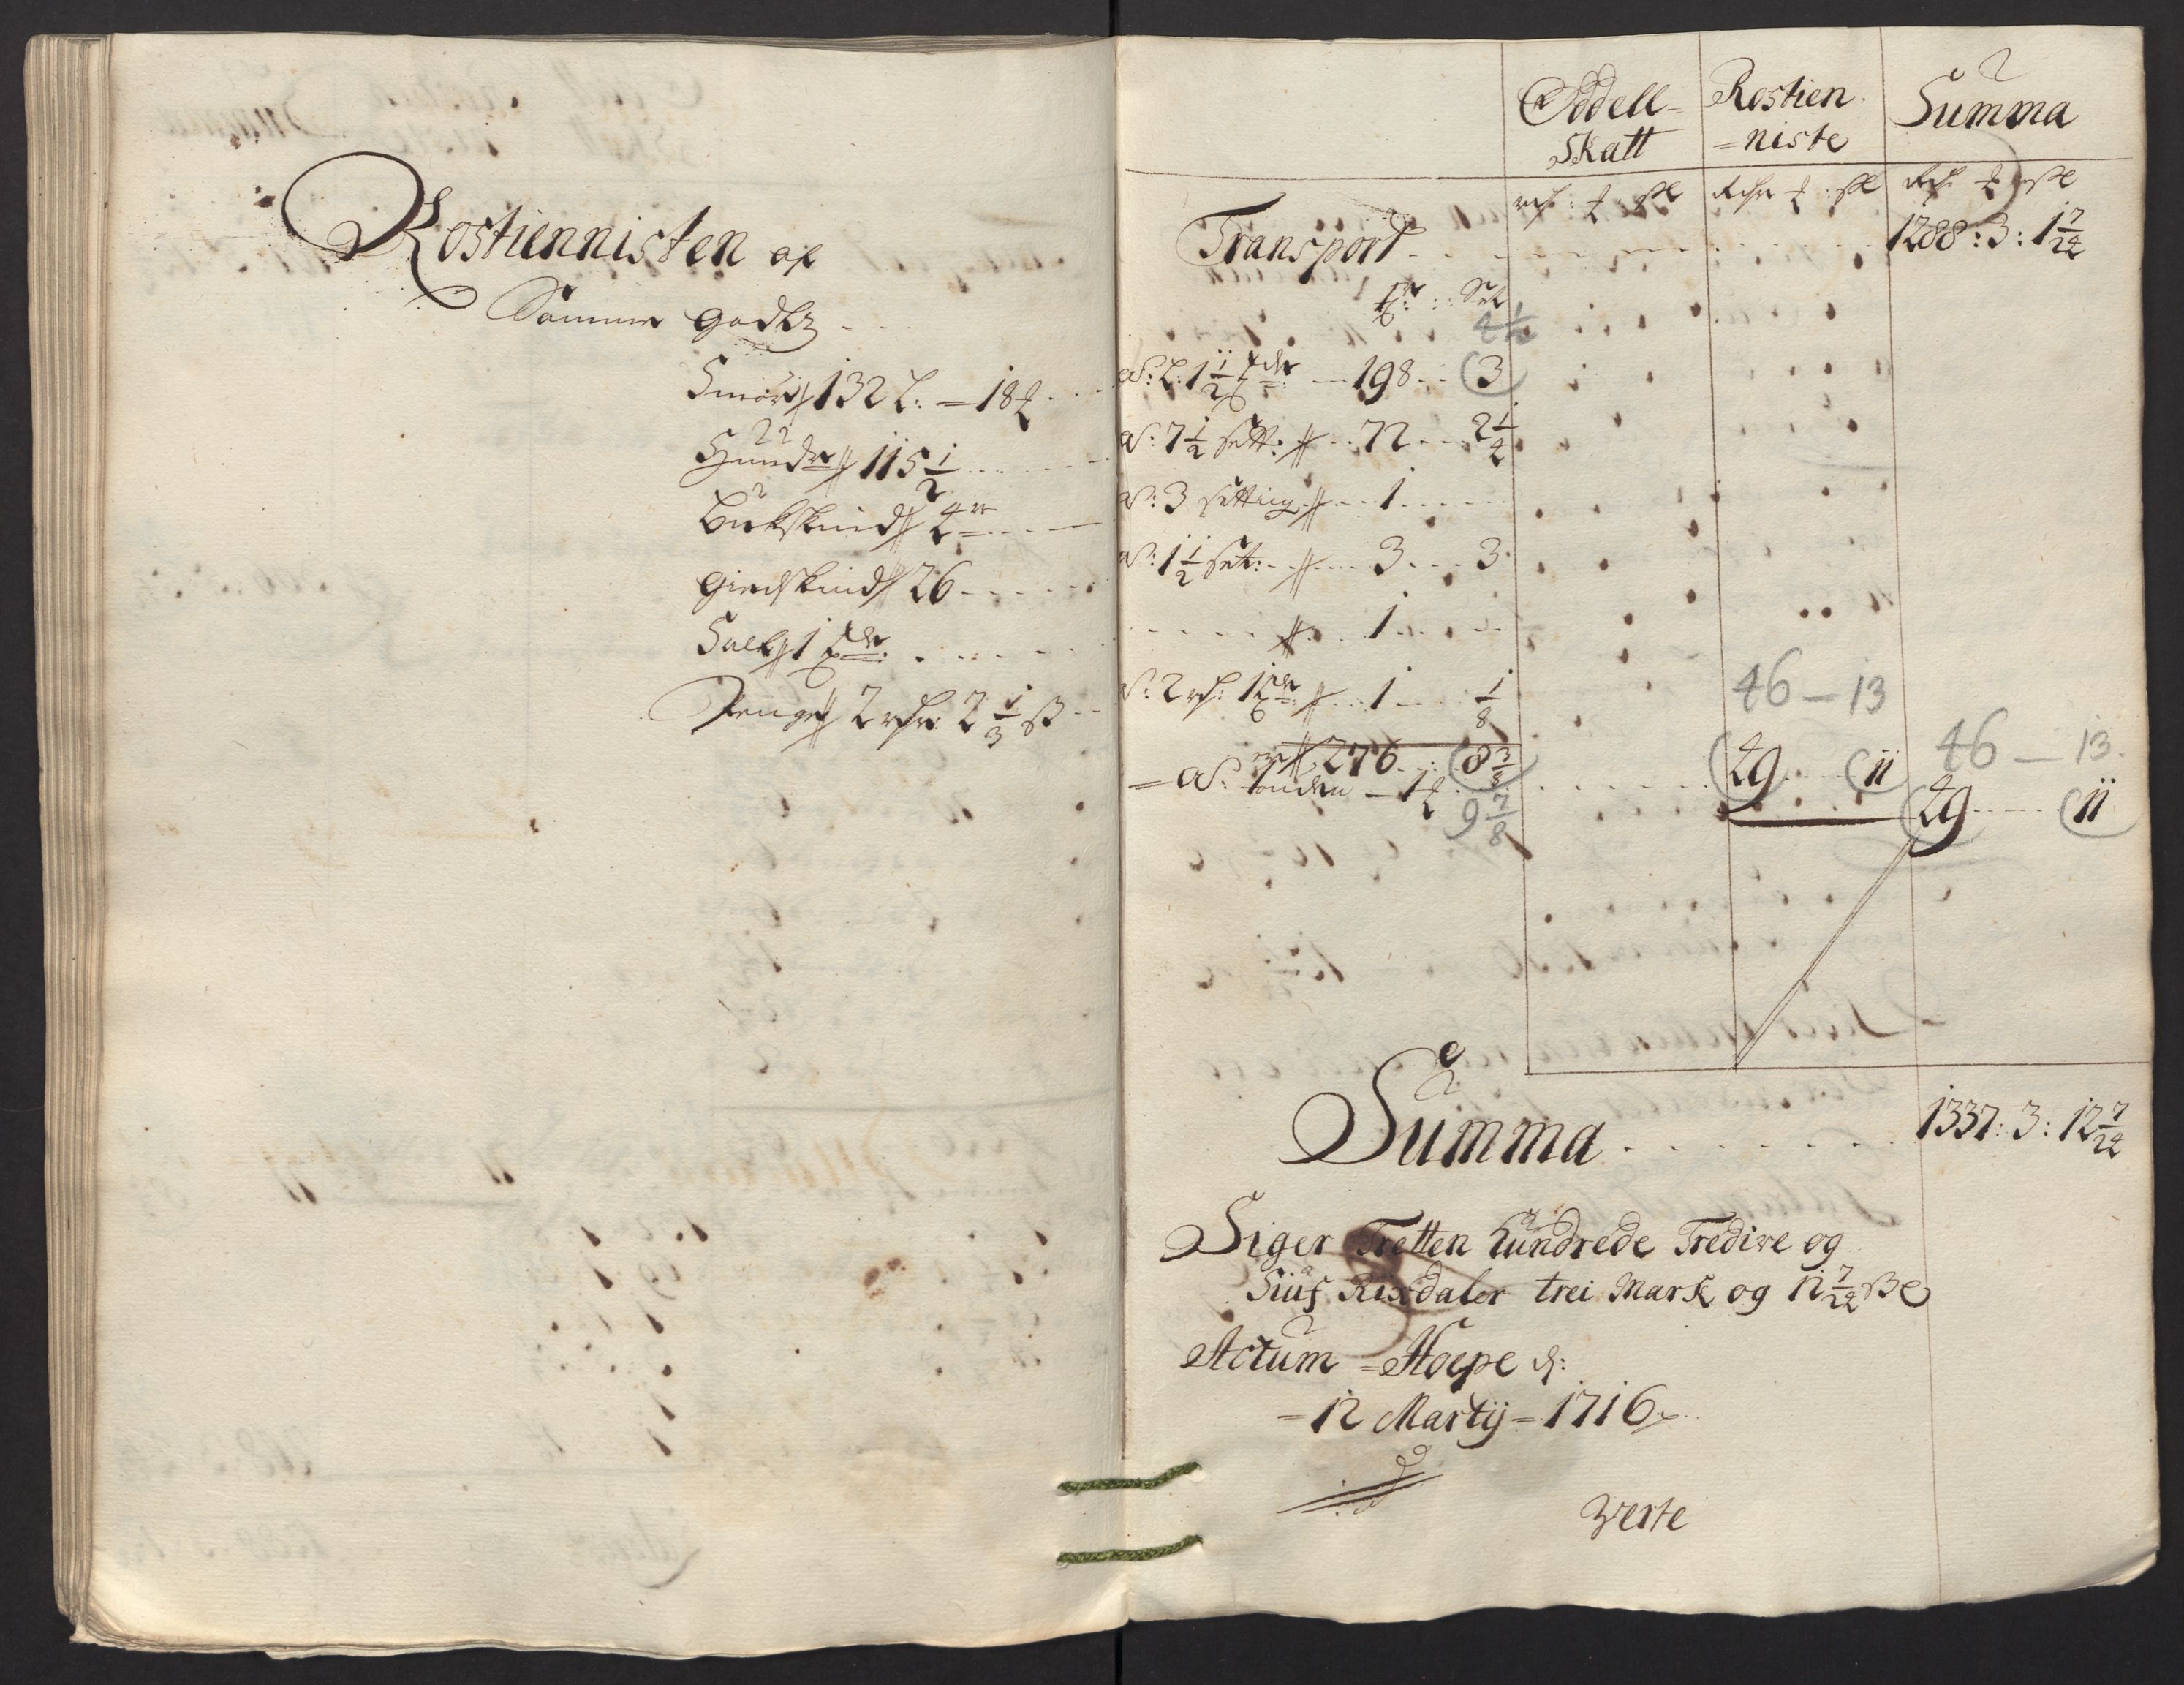 Rostiennisten af
Samme godtz
Smør 132 L: = 18 ƒ
Huude 115 1/2
Bukskind 4
Giedskind 26
Salt 1 Tde
Penge 2 rdr 2 1/3 ß
Oddell-
Skatt
Rostien-
=niste
Summa
Transport 1288: 3: 1 7/24
4 1/2
a: L: 1 1/2 198 3
a: 7 1/2 sett: 72 2 1/4
a: 3 setting 1
a: 1 1/2 set: 3 3
1
a: 2 rd: 1 1 1/8
46 - 13
276 8 3/8 46 - 13
= a: tønden - 1 49 11
9 7/8 49 11
Summa 1337: 3: 12 7/24
Siger Tretten hundrede Tredive og
Siuf Rixdaler trei Mark og 12 7/24 ß
Actum Hope d:
= 12 Martij = 1716
Verte